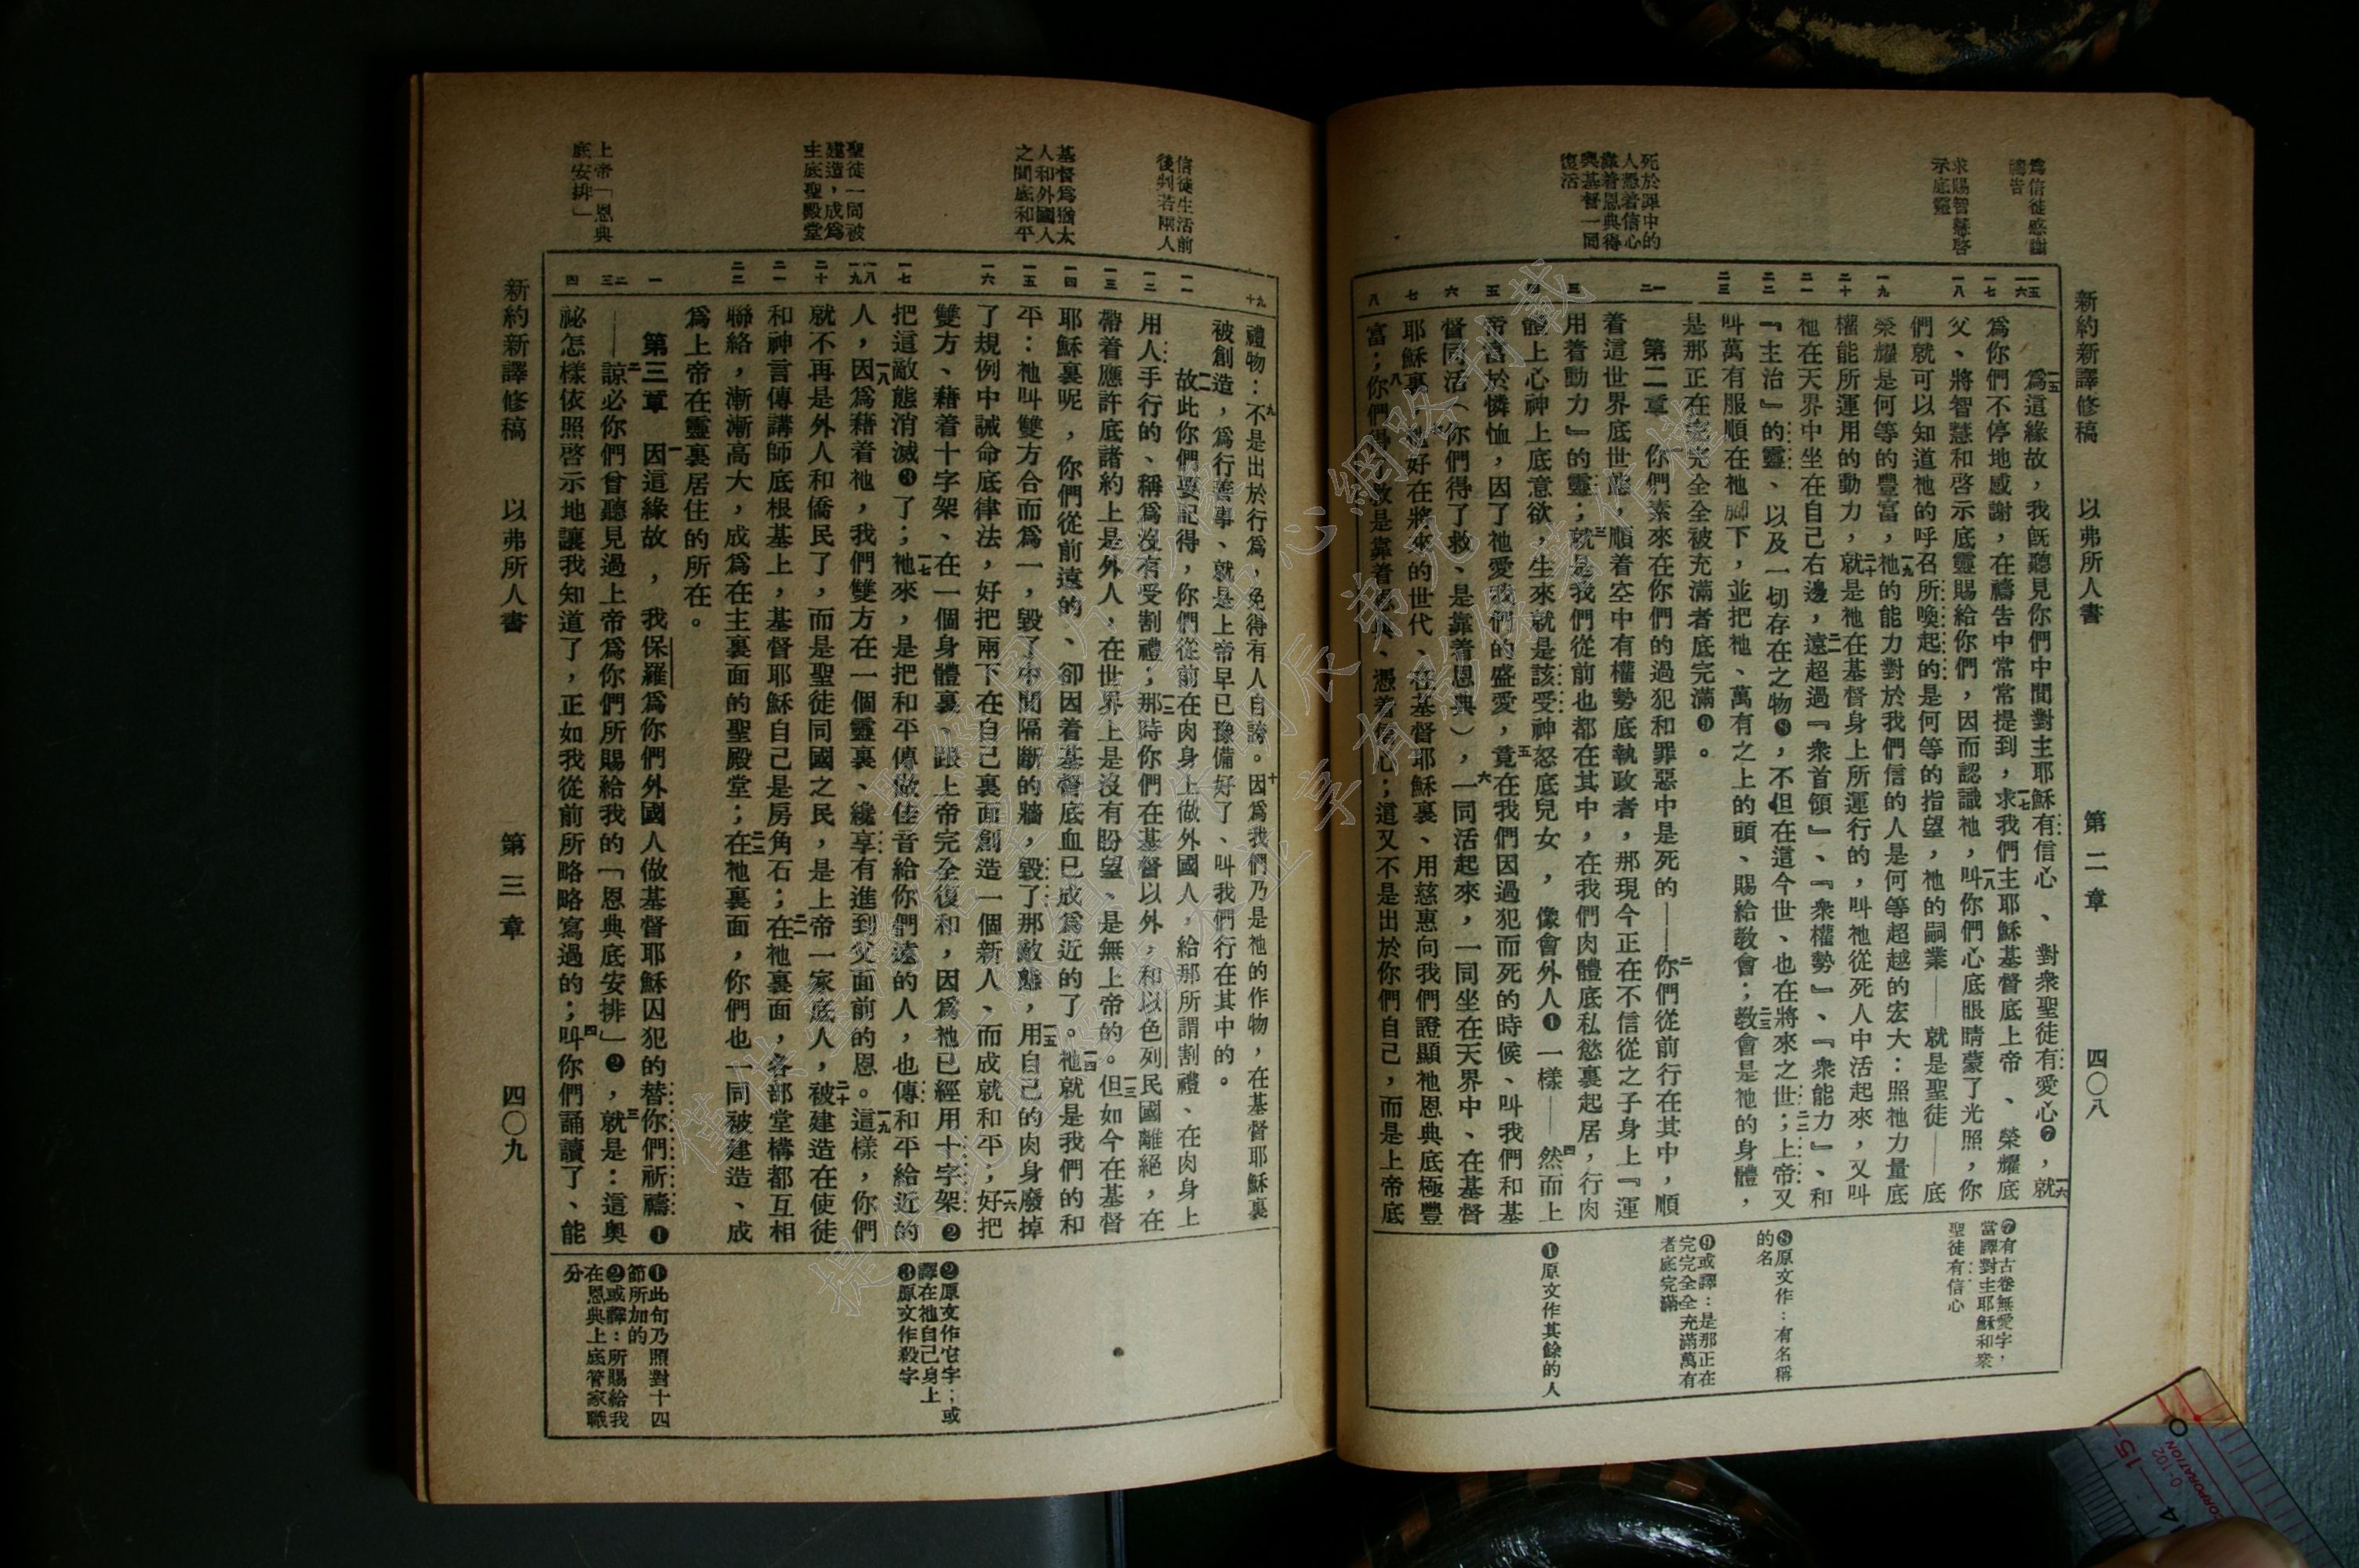 新約新譯修稿　以弗所人書　第二章　四〇八
爲信徒感謝
禱告
求賜智慧啓
示底靈
死於罪中的
人憑着信心
靠着恩典得
與基督一同
復活
爲這緣故，我旣聽見你們中間對主耶穌有信心、對衆聖徒有愛心❼，就
爲你們不停地感謝，在禱告中常常提到，求我們主耶穌基督底上帝、榮耀底
父、將智慧和啓示底靈賜給你們，因而認識祂，叫你們心底眼睛蒙了光照，你
們就可以知道祂的呼召所喚起的是何等的指望，祂的嗣業——就是聖徒——底
榮耀是何等的豐富，祂的能力對於我們信的人是何等超越的宏大：照祂力量底
權能所運用的動力，就是祂在基督身上所運行的，叫祂從死人中活起來，又叫
祂在天界中坐在自己右邊，遠超過『衆首領』、『衆權勢』、『衆能力』、和
『主治』的靈、以及一切存在之物❽，不但在這今世、也在將來之世；上帝又
叫萬有服順在祂脚下，並把祂、萬有之上的頭、賜給敎會；敎會是祂的身體，
是那正在完完全全被充滿者底完滿❾。
第二章　你們素來在你們的過犯和罪惡中是死的——你們從前行在其中，順
着這世界底世態，順着空中有權勢底執政者，那現今正在不信從之子身上『運
用着動力』的靈；就是我們從前也都在其中，在我們肉體底私慾裏起居，行肉
體上心神上底意欲，生來就是該受神怒底兒女，像會外人❶一樣——然而上
帝富於憐恤，因了祂愛我們的盛愛，竟在我們因過犯而死的時候、叫我們和基
督同活（你們得了救、是靠着恩典），一同活起來，一同坐在天界中、在基督
耶穌裏，好在將來的世代、在基督耶穌裏、用慈惠向我們證顯祂恩典底極豐
富；你們得了救是靠着恩典、憑着信心；這又不是出於你們自己，而是上帝底
❼有古卷無愛字，
當譯對主耶穌和衆
聖徒有信心
❽原文作：有名稱
的名
❾或譯：是那正在
完完全全充滿萬有
者底完滿
❶原文作其餘的人
信徒生活前
後判若兩人
基督爲猶太
人和外國人
之間底和平
聖徒一同被
建造，成爲
生底聖殿堂
上帝「恩典
底安排」
禮物：不是出於行爲，免得有人自誇。因爲我們乃是祂的作物，在基督耶穌裏
被創造，爲行善事、就是上帝早已豫備好了、叫我們行在其中的。
故此你們要記得，你們從前在肉身上做外國人，給那所謂割禮、在肉身上
用人手行的、稱爲沒有受割禮；那時你們在基督以外，和以色列民國離絕，在
帶着應許底諸約上是外人，在世界上是沒有盼望、是無上帝的。但如今在基督
耶穌裏呢，你們從前遠的、卻因着基督底血已成爲近的了。祂就是我們的和
平：祂叫雙方合而爲一，毀了中間隔斷的牆，毀了那敵態，用自己的肉身廢掉
了規例中誡命底律法，好把兩下在自己裏面創造一個新人、而成就和平；好把
雙方、藉着十字架、在一個身體裏、跟上帝完全復和，因爲祂已經用十字架❷
把這敵態消滅❸了；祂來，是把和平傳做佳音給你們遠的人，也傳和平給近的
人，因爲藉着祂，我們雙方在一個靈裏、纔享有進到父面前的恩。這樣，你們
就不再是外人和僑民了，而是聖徒同國之民，是上帝一家底人，被建造在使徒
和神言傳講師底根基上，基督耶穌自己是房角石；在祂裏面，各部堂構都互相
聯絡，漸漸高大，成爲在主裏面的聖殿堂；在祂裏面，你們也一同被建造、成
爲上帝在靈裏居住的所在。
第三章　因這緣故，我保羅爲你們外國人做基督耶穌囚犯的替你們祈禱❶
——諒必你們曾聽見過上帝爲你們所賜給我的「恩典底安排」❷，就是：這奧
祕怎樣依照啓示地讓我知道了，正如我從前所略略寫過的；叫你們誦讀了、能
❷原文作它字；或
譯在祂自己身上
❸原文作殺字
❶此句乃照對十四
節所加的
❷或譯：所賜給我
在恩典上底管家職
分
新約新譯修稿　以弗所人書　第三章　四〇九